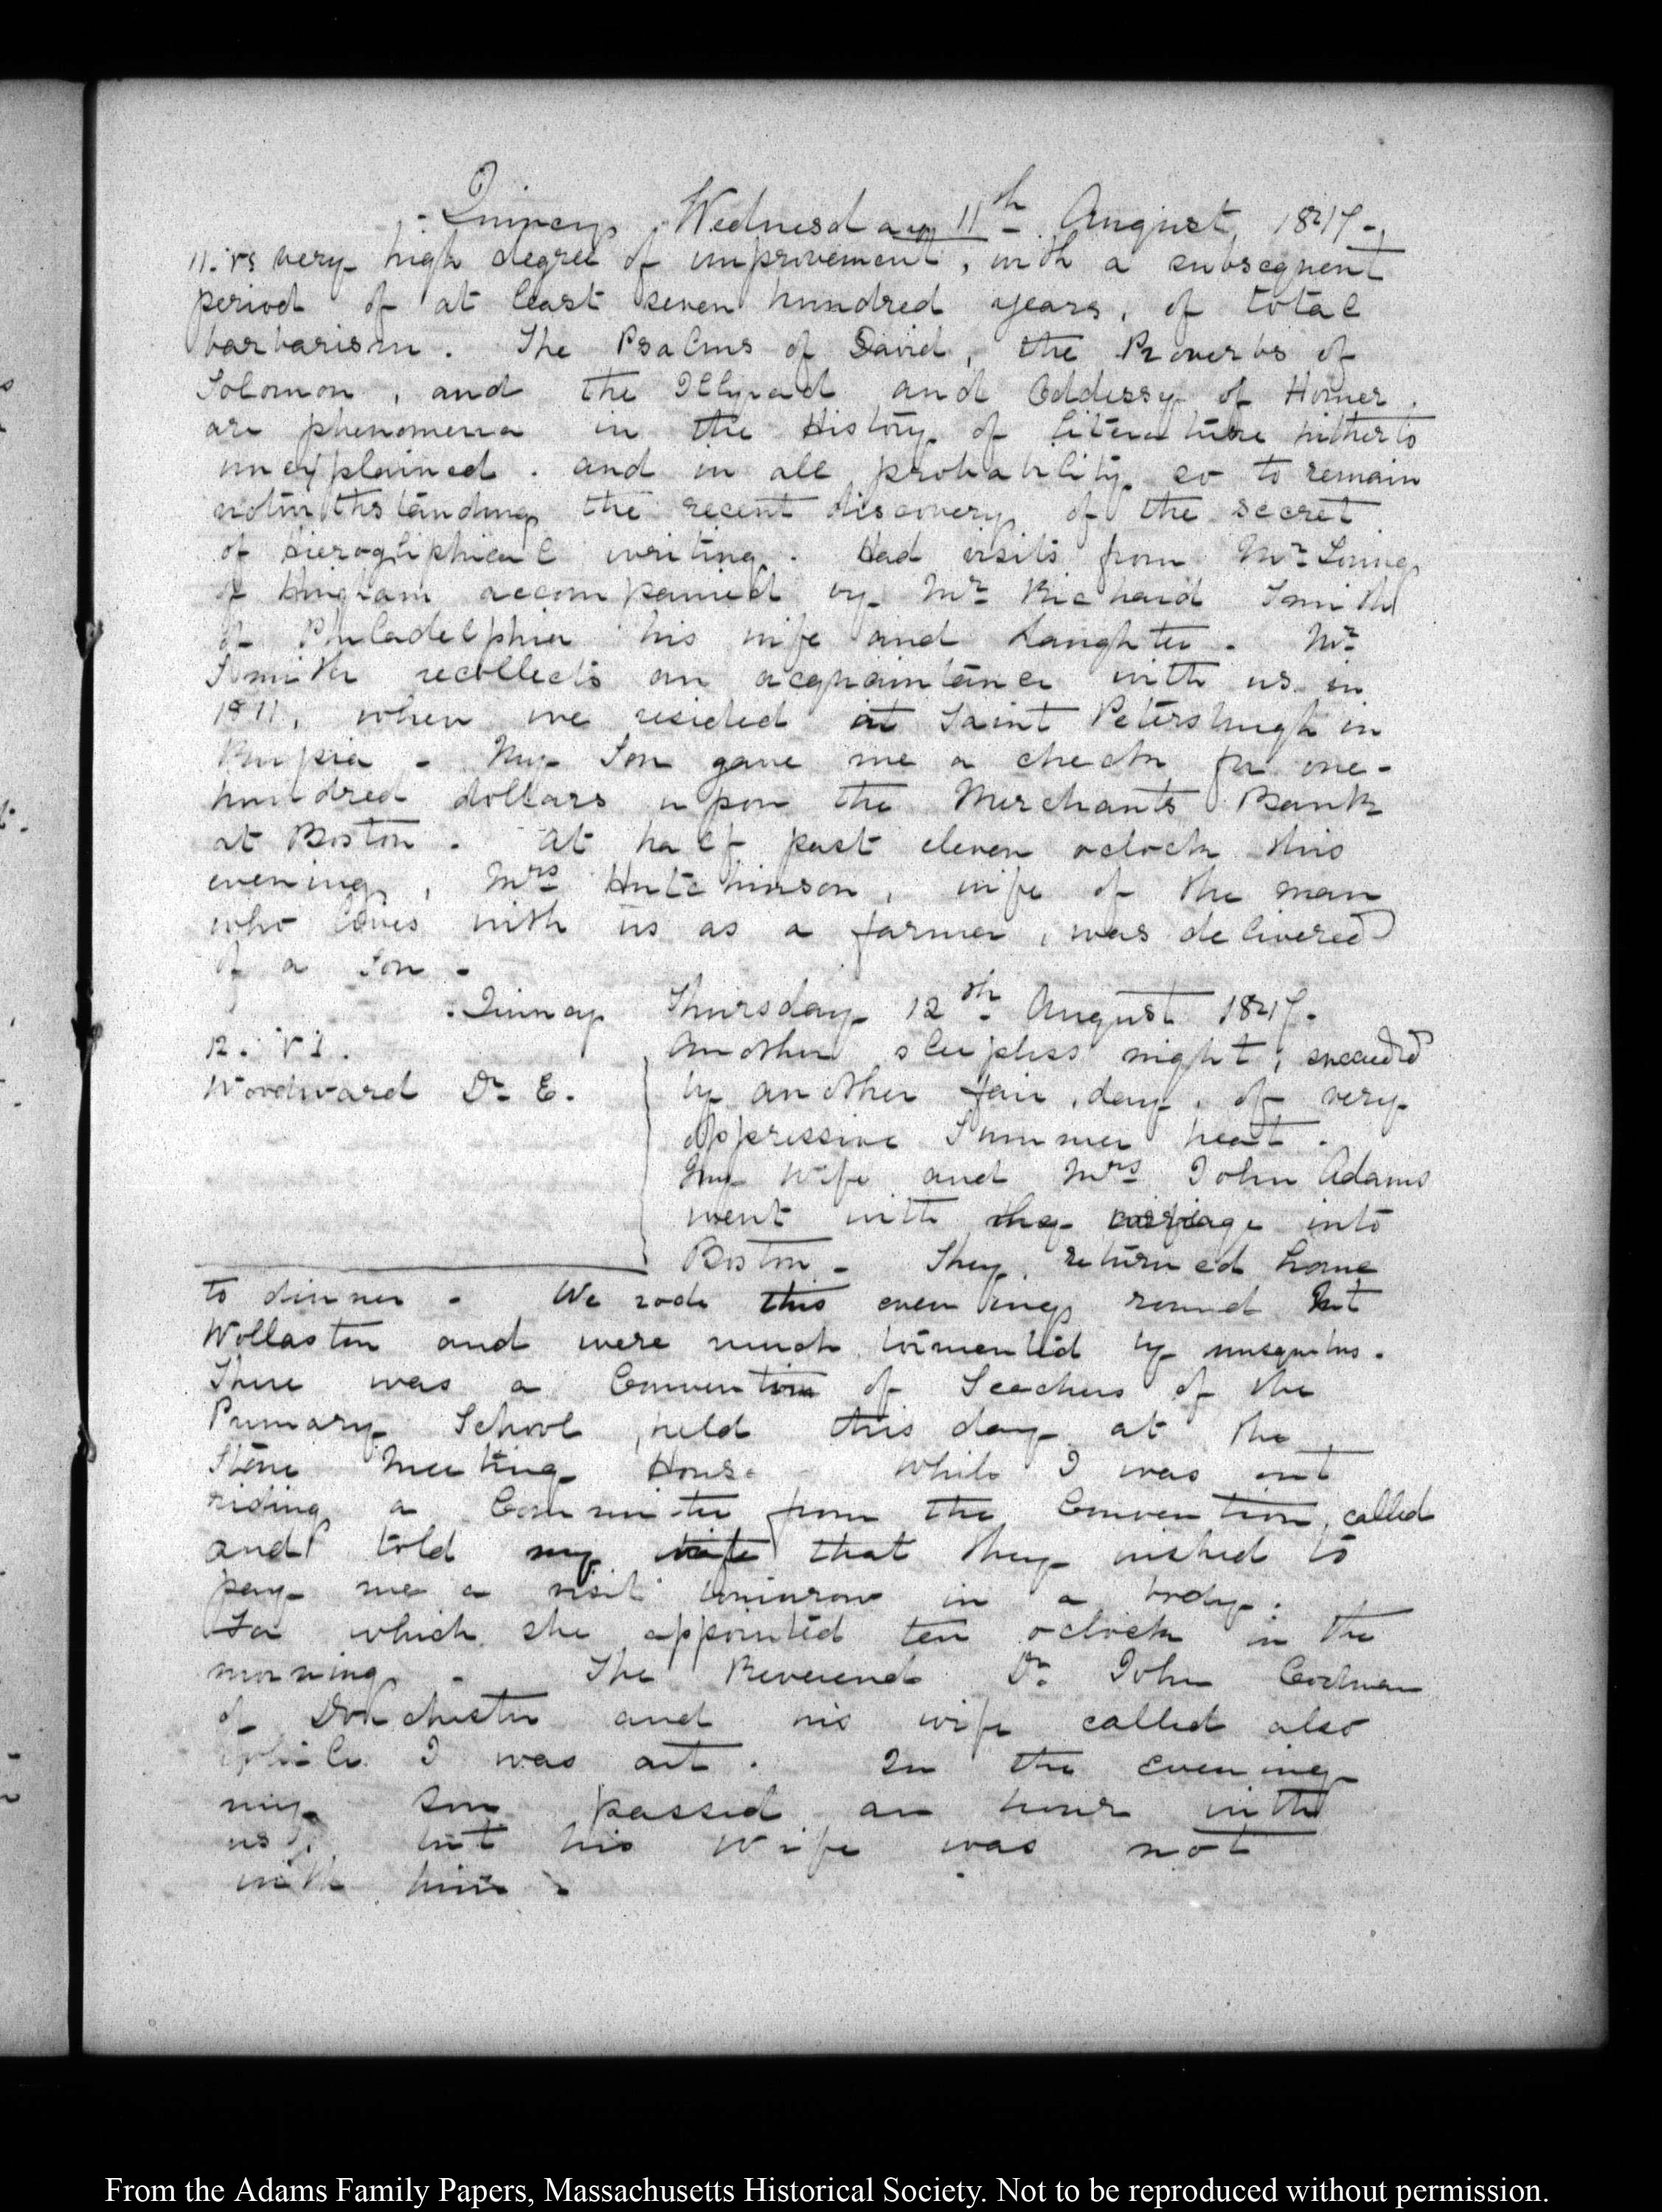 Quincy Wednesday 11th August 1847.
11. V5 very high degree of improvement, with a subsequent
period of at least seven hundred years, of total
barbarism. The Psalms of David, the Proverbs of
Solomon, and the Illyad and Oddessy of Homer.
are phenomena in the History of literature hitherto
unexplained. and in all probability so to remain
notwithstanding the recent discovery of the secret
of Hierogliphical writing. Had visits from Mr Loring
of Hingham accompanied by Mr Richard Smith
of Philadelphia his wife and daughter. Mr
Smith recollects an acquaintance with us in
1811, when we resided at Saint Petersburgh in
Russia - My Son gave me a check for one-
hundred dollars upon the Merchants Bank
at Boston. At half past eleven oclock this
evening, Mrs Hutchinson, wife of the man
who lives with us as a farmer, was delivered
of a Son -
Quincy Thursday 12th August 1847.
12. VI. Another sleepless night, succeeded
Woodward Dr E. by another fair day, of very
oppressive Summer heat.
My Wife and Mrs John Adams
went with the carriage into
Boston - They returned home
to dinner - We rode this evening round Mt
Wollaston and were much tormented by musquitos.
There was a Convention of Teachers of the
Primary School held this day at the
Stone Meeting House While I was out
riding a Committee from the Convention called
and told my wife that they wished to
pay me a visit tomorrow in a body.
For which she appointed ten oclock in the
morning - The Reverend Dr John Codman
of Dorchester and his wife called also
while I was out. In the evening
my Son passed an hour with
us, but his Wife was not
with him -
From the Adams Family Papers, Massachusetts Historical Society. Not to be reproduced without permission.